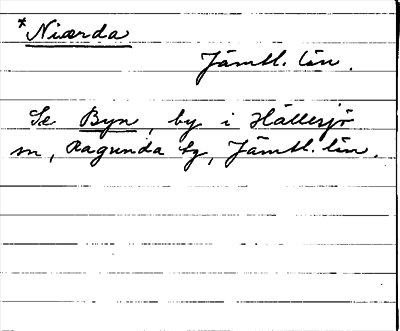 *Niærda
Jämtl. län.
Se Byn, by i Hällesjö
sn, Ragunda tg, Jämtl. län.